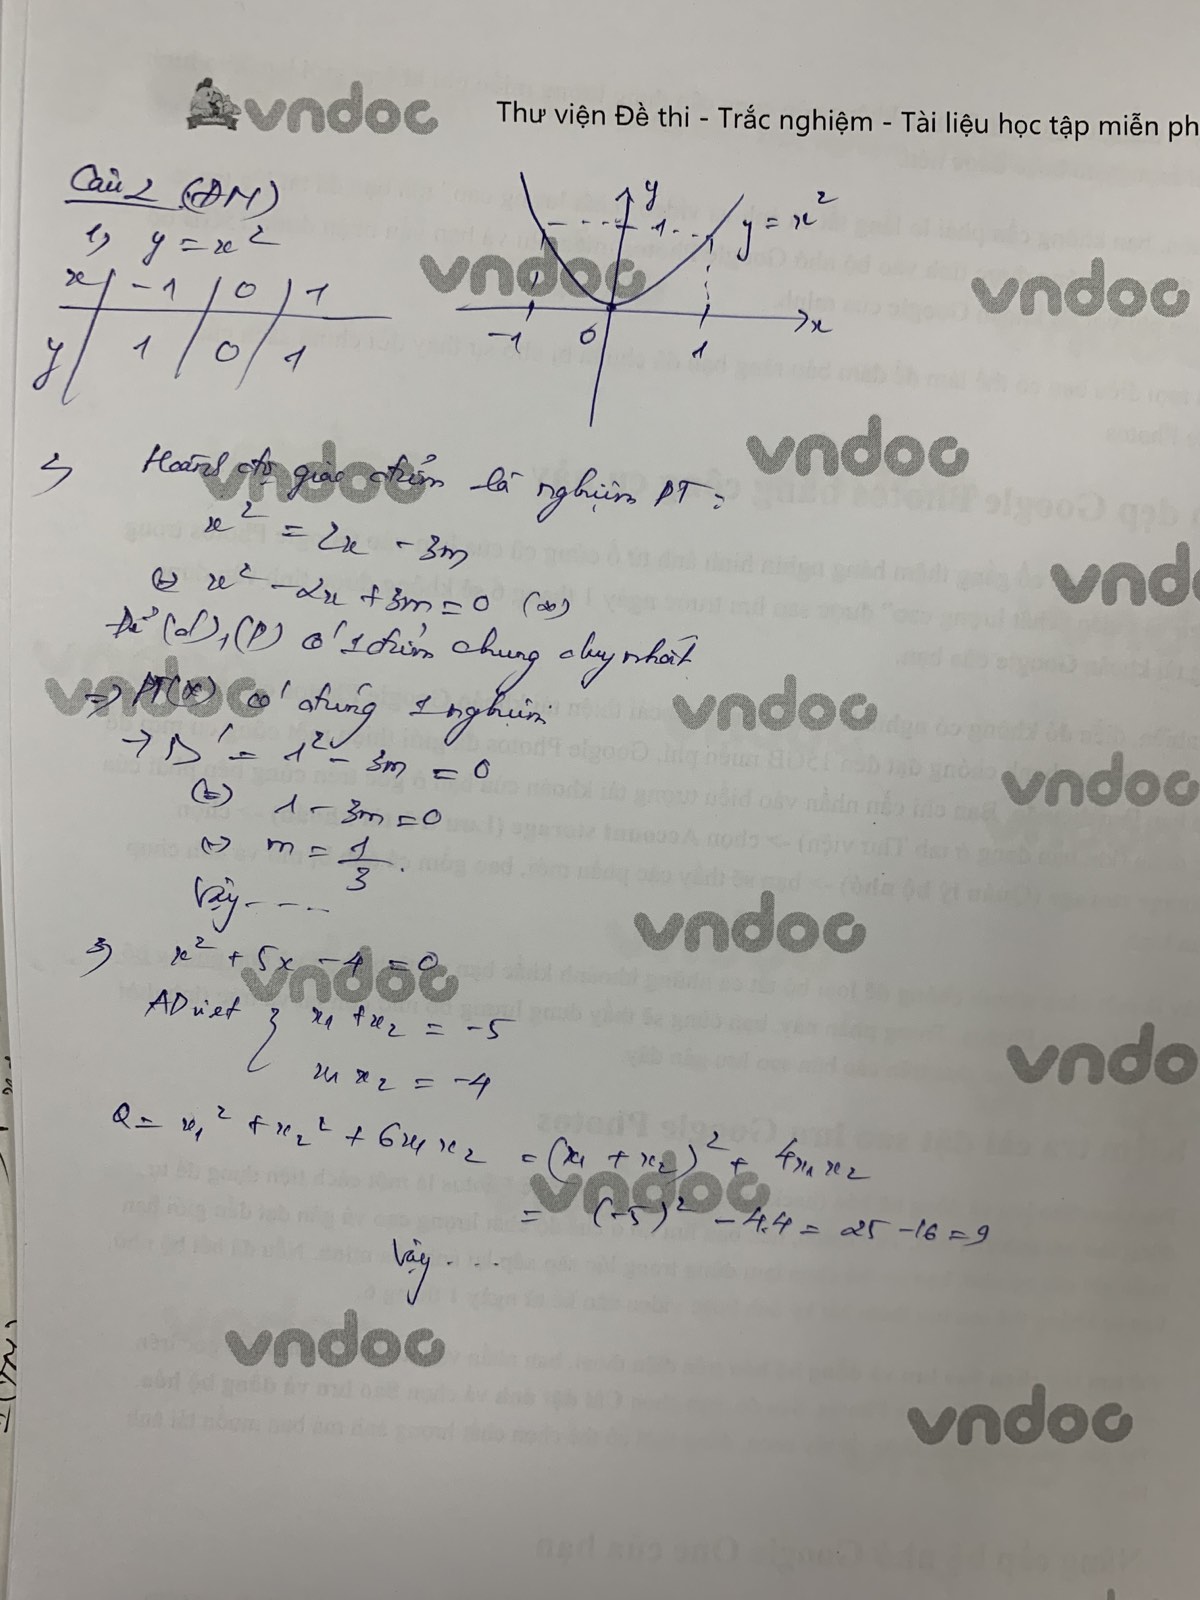 vndoc
Thư viện Đề thi - Trắc nghiệm - Tài liệu học tập miễn ph
Câu 2 (ĐM)
1, y = x²
x -1 0 1
y 1 0 1
y
1
y = x²
-1 0 1 x
vndoc
vndoc
vndoc
2, Hoành độ giao điểm là nghiệm PT:
vndoc
x² = 2x - 3m
⇔ x² - 2x + 3m = 0 (*)
vndo
Để (d), (P) có 1 điểm chung duy nhất
vndoc
vndoc
⇒ PT(*) có đúng 1 nghiệm
→ Δ' = 1² - 3m = 0
vndoc
⇔ 1 - 3m = 0
⇔ m = 1/3.
Vậy - - - -
vndoc
3, x² + 5x - 4 = 0
vndoc
AD viet { x1 + x2 = -5
x1 x2 = -4
vndo
Q = x1² + x2² + 6x1x2 = (x1 + x2)² + 4x1x2
vndoc
= (-5)² - 4.4 = 25 - 16 = 9
Vậy . . . .
vndoc
vndoc